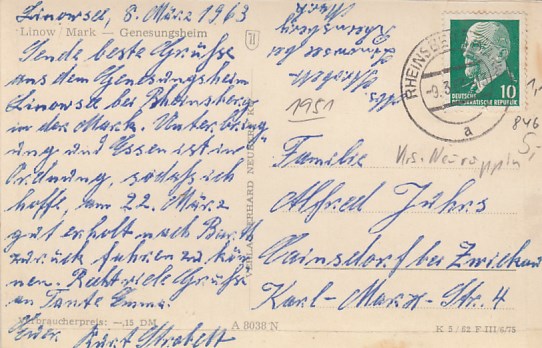 Linowsee, 8. März 1963
Linow / Mark — Genesungsheim
Sende beste Grüße
aus dem Genesungsheim
Linowsee bei Rheinsberg
in der Mark. Unterbring
ung und Essen ist in
Ordnung, so daß ich
hoffe, am 22. März
gut erholt nach
zurück fahren zu kön
nen. Recht viele Grüße
an Tante Emma
Euer Kurt Strobelt
Verbraucherpreis: —,15 DM
A 8038 N
VERLAG ERHARD NEUBERT K
1951
RHEINSB
a
10
DEUTSCHE
DEMOKRATISCHE REPUBLIK
1,-
846
5,-
Krs. Neuruppin
Familie
Alfred Jührs
Cainsdorf bei Zwickau
Karl-Marx-Str. 4
K 5/62 F III/6/75